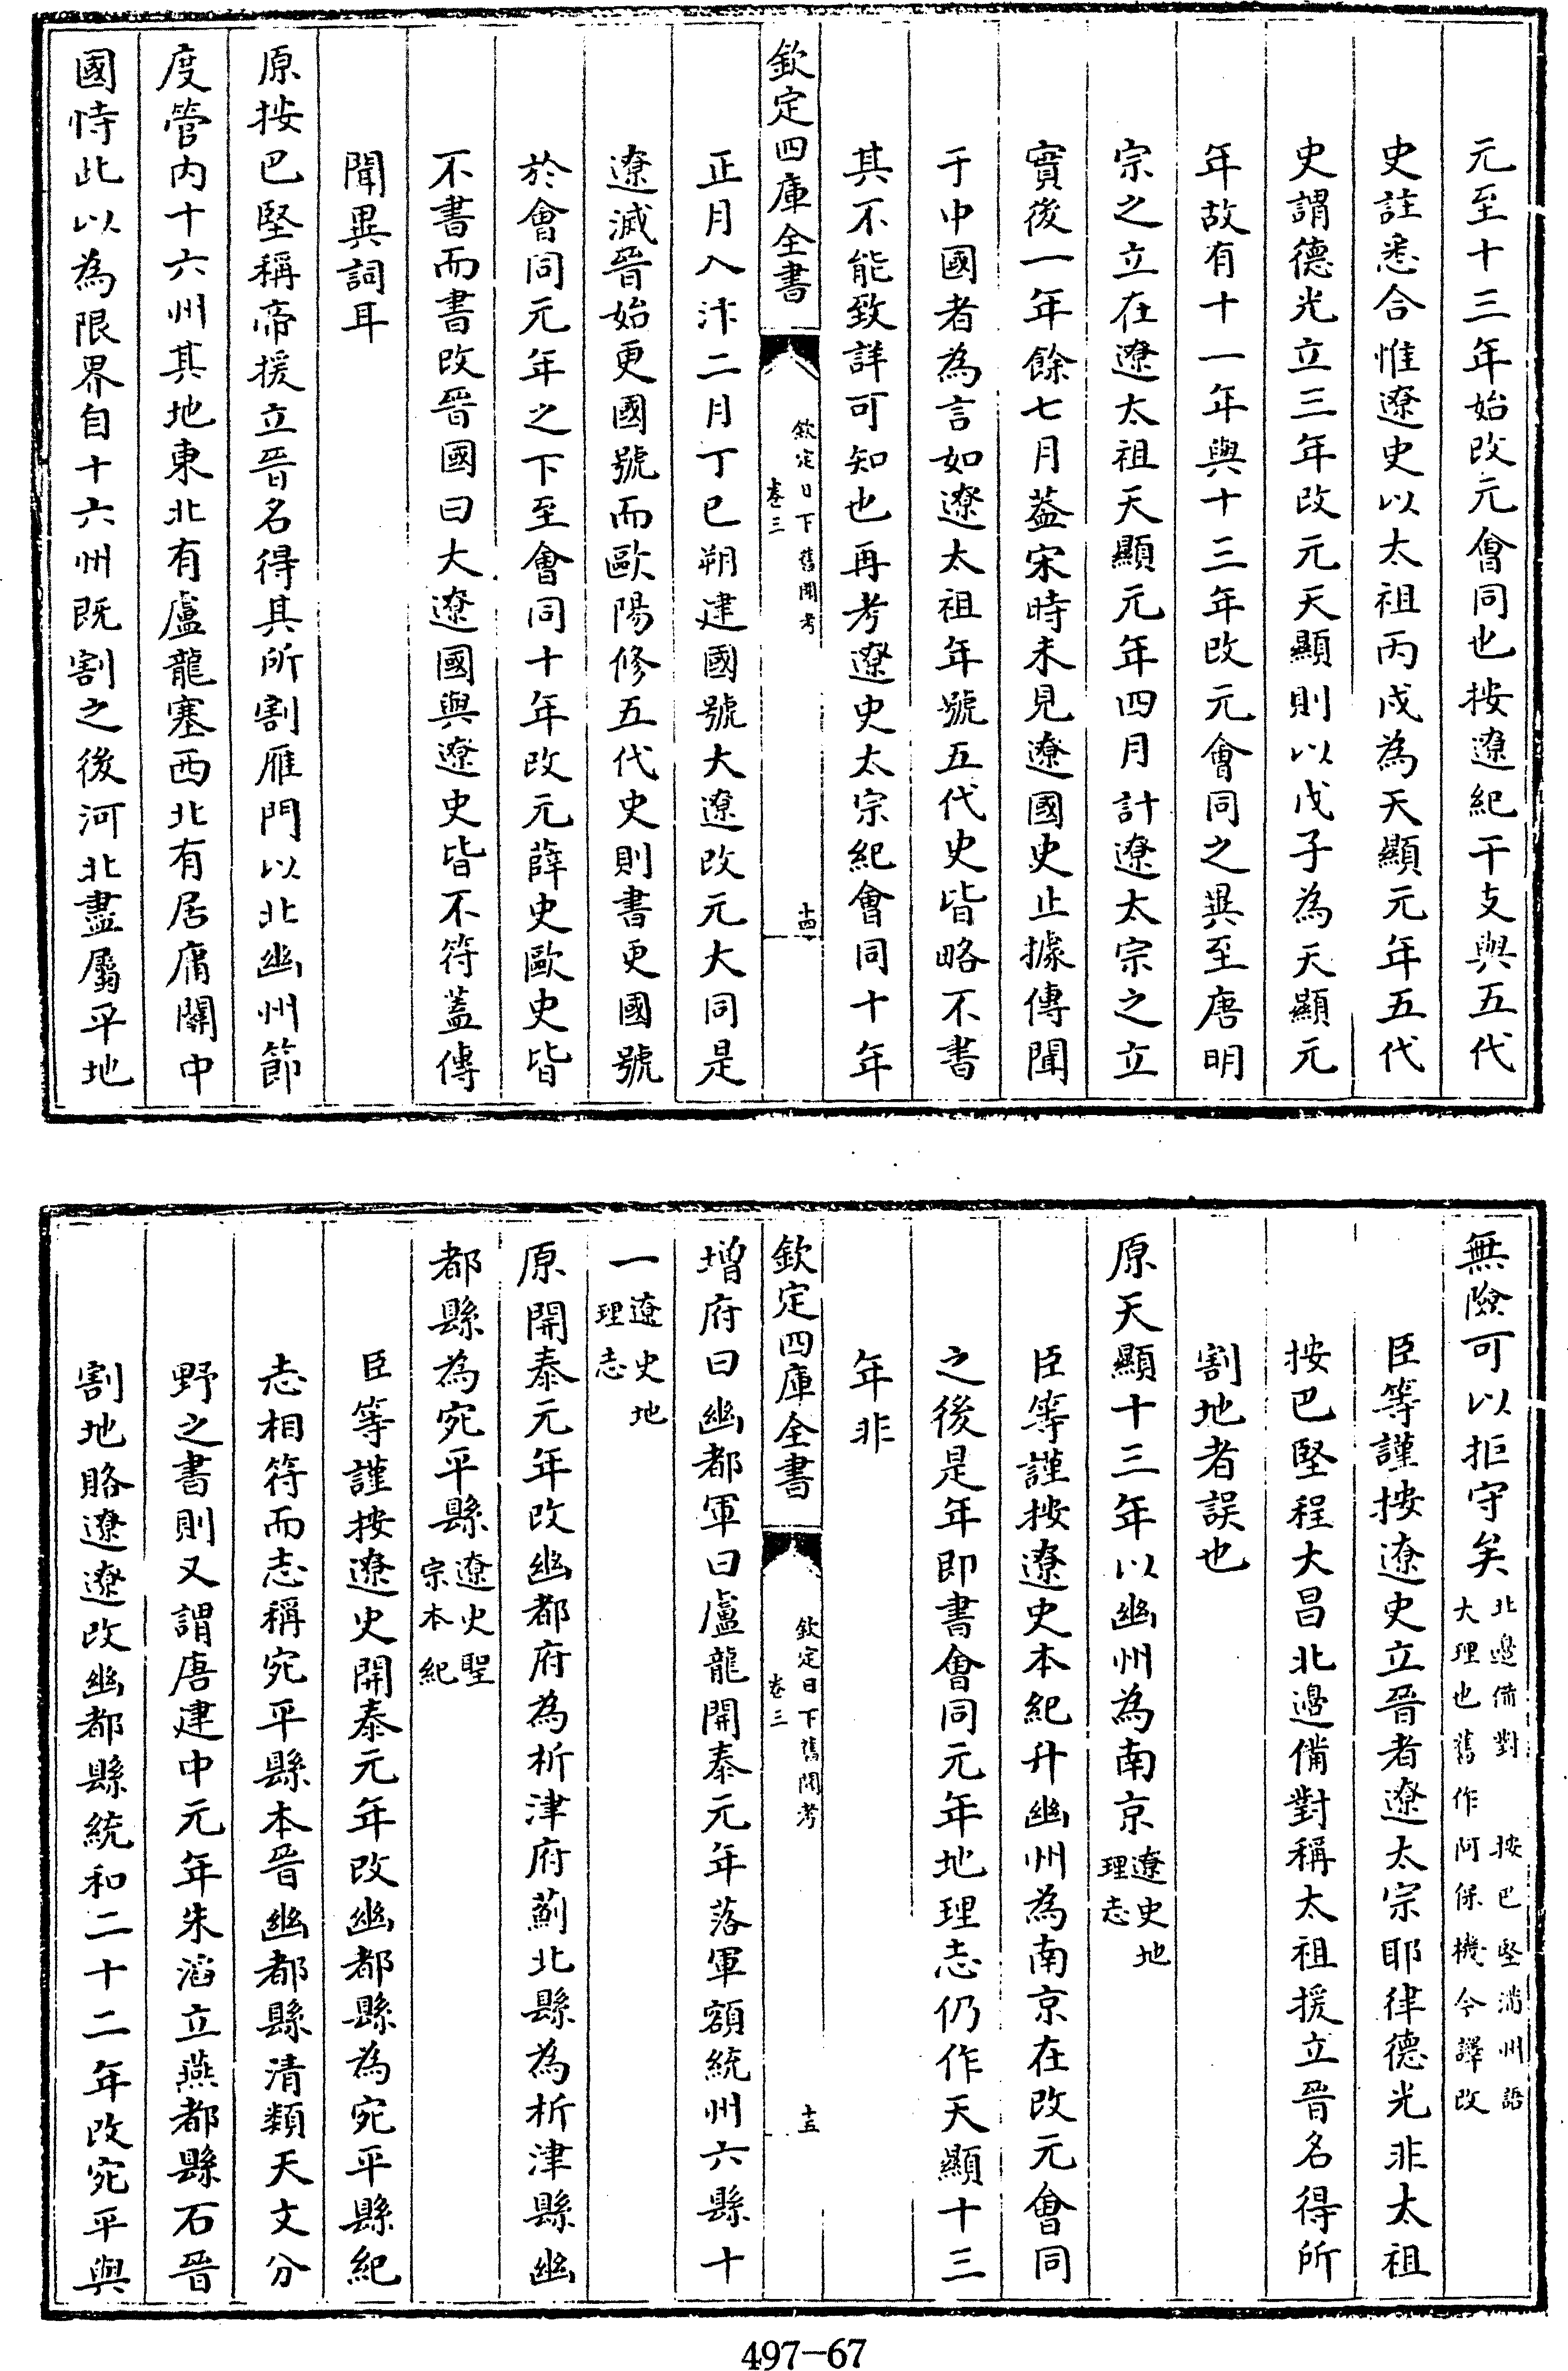 元至十三年始改元會同也按遼紀干支與五代
史註悉合惟遼史以太祖丙戌為天顯元年五代
史謂德光立三年改元天顯則以戊子為天顯元
年故有十一年與十三年改元會同之異至唐明
宗之立在遼太祖天顯元年四月計遼太宗之立
實後一年餘七月蓋宋時未見遼國史止據傳聞
于中國者為言如遼太祖年號五代史皆略不書
其不能致詳可知也再考遼史太宗紀會同十年
欽定四庫全書
欽定日下舊聞考
卷三
十四
正月入汴二月丁巳朔建國號大遼改元大同是
遼滅晉始更國號而歐陽修五代史則書更國號
於會同元年之下至會同十年改元薛史歐史皆
不書而書改晉國曰大遼國與遼史皆不符蓋傳
聞異詞耳
原按巴堅稱帝援立晉名得其所割雁門以北幽州節
度管内十六州其地東北有盧龍塞西北有居庸關中
國恃此以為限界自十六州既割之後河北盡屬平地
無險可以拒守矣
北邊備對 按巴堅满州語
大理也舊作阿保機今譯改
臣等謹按遼史立晉者遼太宗耶律德光非太祖
按巴堅程大昌北邊備對稱太祖援立晉名得所
割地者誤也
原天顯十三年以幽州為南京
遼史地
理志
臣等謹按遼史本紀升幽州為南京在改元會同
之後是年即書會同元年地理志仍作天顯十三
年非
欽定四庫全書
欽定日下舊聞考
卷三
十五
增府曰幽都軍曰盧龍開泰元年落軍額統州六縣十
一
遼史地
理志
原開泰元年改幽都府為析津府薊北縣為析津縣幽
都縣為宛平縣
遼史聖
宗本紀
臣等謹按遼史開泰元年改幽都縣為宛平縣紀
志相符而志稱宛平縣本晉幽都縣清類天文分
野之書則又謂唐建中元年朱滔立燕都縣石晉
割地賂遼遼改幽都縣統和二十二年改宛平與
497-67